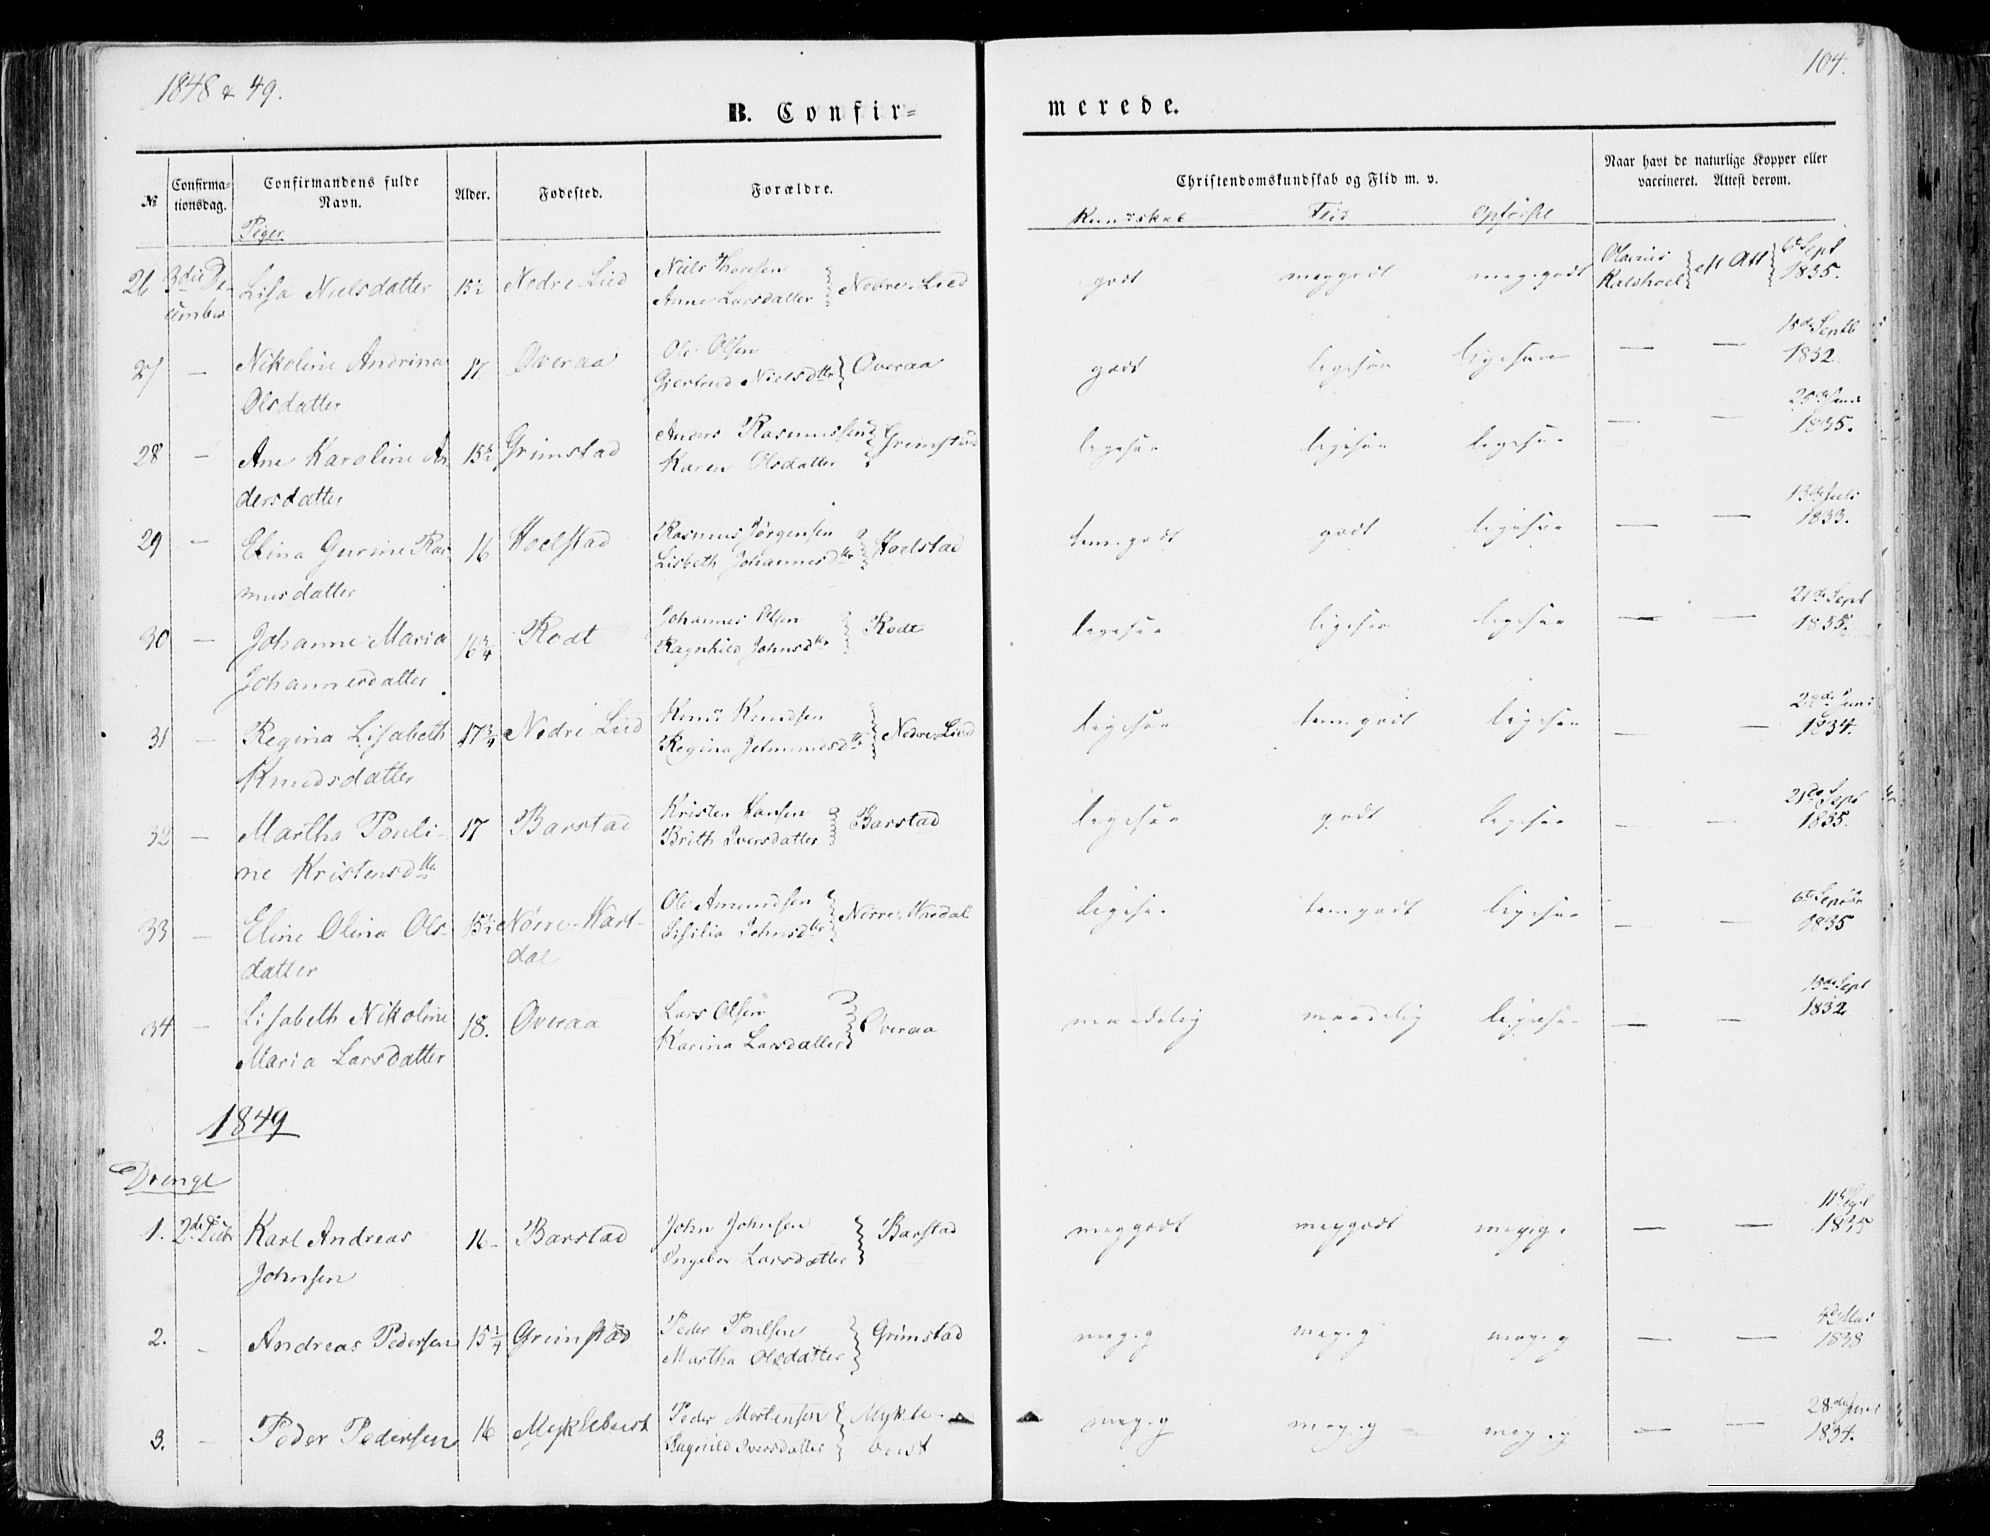 1848 & 49.
104.
B. Confir=
merede.
№
Confirma=
tionsdag.
Confirmandens fulde
Navn.
Alder.
Fødested.
Forældre.
Christendomskundskab og Flid m. v.
Naar havt de naturlige Kopper eller
vaccineret. Attest derom.
Piger
Kundskab Flid Opførsel
26 3die De-
cember Lisa Nielsdatter 15½ Nedre-Lied Niels
Anne Larsdatter } Nedre-Lied godt meg godt meg godt } eft Att { 6te Sept
1835.
27 — Nikoline Andrina
Olsdatter 17 Overaa Ole Olsen
Giertrud Nielsdttr } Overaa godt ligesaa ligesaa — — 15de Septb
1832.
28 — Ane Karoline An
dersdatter 15½ Grimstad Anders Rasmussen
Karen Olsdatter } Grimstad ligesaa ligesaa ligesaa — — Juni
1835.
29 — Elina Gurine Ras
musdatter 16 Hoelstad Rasmus Jørgensen
Lisbeth Johannesdttr } Hoelstad tem. godt godt ligesaa — — 13de Juli
1833.
30 — Johanne Maria
Johannesdatter 16¾ Rodt Johannes Olsen
Ragnhild Johnsdttr } Rodt ligesaa ligesaa ligesaa — — 21de Sept
1835.
31 — Regina Lisabeth
Knudsdatter 17¾ Nedre-Lied Knud Knudsen
Regina Jetmundsdttr } Nedre-Lied ligesaa tem. godt ligesaa — — Juni
1834.
32 — Martha Pouli-
ne Kristensdttr 17 Barstad Kristen Hansen
Brith Iversdatter } Barstad ligesaa godt ligesaa — — 21de Sept
1835.
33 — Eline Olina Ols-
datter 15½ Nørre-Hart-
dal Ole Amundsen
Sisilia Johnsdttr } Nørre-Hardal ligesaa tem godt ligesaa — — 6te Septbr
1835
34 — Lisabeth Nikoline
Maria Larsdatter 18. Overaa Lars Olsen
Karina Larsdatter } Overaa maadelig maadelig ligesaa — — 15de Sept
1832
1849
Drenge
1. 2de Decbr Karl Andreas
Johnsen 16 Barstad John Johnsen
Ingebor Larsdatter } Barstad meg godt meg godt meg. g. — — 11te
1835
2. — Andreas Pedersen 15¼ Grimstad Peder Poulsen
Martha Olsdatter } Grimstad meg. g meg. g meg. g — — 4de Mai
1838
3. — Peder Pedersen 16 Myklebust Peder Mortensen
Iversdatter } Mykle-
bust meg. g meg. g meg. g — — 28de Juni
1834.